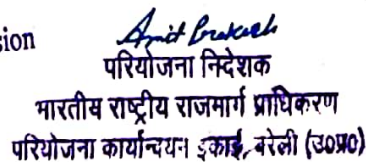 sion
Amit Prakash
परियोजना निदेशक
भारतीय राष्ट्रीय राजमार्ग प्राधिकरण
परियोजना कार्यान्वयन इकाई, बरेली (उ०प्र०)